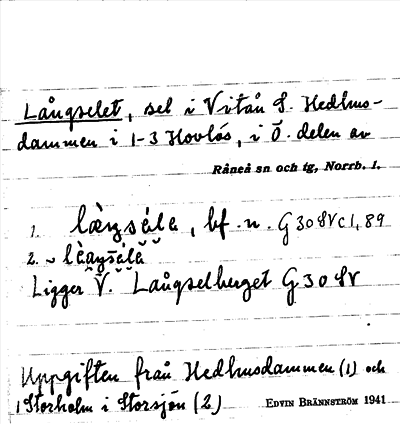 Långselet, sel i Vitån S. Hedhus-
dammen i 1-3 Hovlös, i Ö. delen av
Råneå sn och tg, Norrb. l.
1. bf. n. G 30 SV c 1, 89
2. ~
Ligger V. Långselberget G 30 SV
Uppgiften från Hedhusdammen (1) och
i Storholm i Storsjön (2) EDVIN BRÄNNSTRÖM 1941